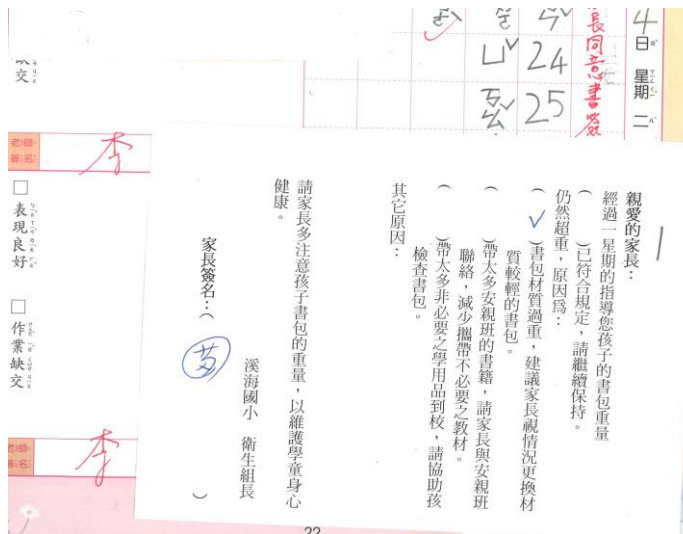 4日星期二
長同意書簽
24
25
ㄩ
交
老師簽名
李
表現良好
作業缺交
李
親愛的家長：
經過一星期的指導您孩子的書包重量
（　）已符合規定，請繼續保持。
仍然超重，原因爲：
（✓）書包材質過重，建議家長視情況更換材
質較輕的書包。
（　）帶太多安親班的書籍，請家長與安親班
聯絡，減少攜帶不必要之教材。
（　）帶太多非必要之學用品到校，請協助孩
檢查書包。
其它原因：
請家長多注意孩子書包的重量，以維護學童身心
健康。
溪海國小　衛生組長
家長簽名：（　）
22